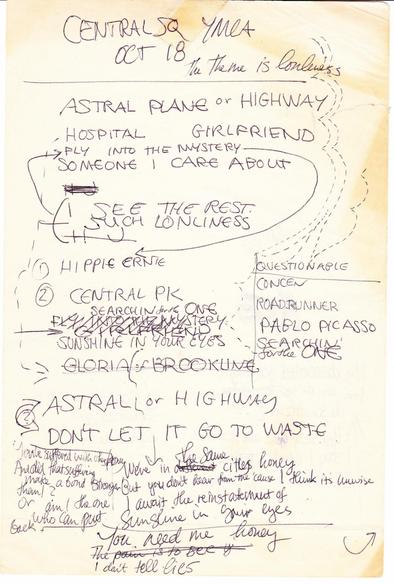 CENTRAL SQ YMCA
OCT 18
the theme is lonliness
ASTRAL PLANE or HIGHWAY
HOSPITAL GIRLFRIEND
FLY INTO THE MYSTERY
SOMEONE I CARE ABOUT
I SEE THE REST.
SUCH LONLINESS
① HIPPIE ERNIE
② CENTRAL PK
SEARCHIN for ONE
FLY INTO THE MYSTERY
GIRLFRIEND
SUNSHINE IN YOUR EYES
GLORIA of BROOKLINE
QUESTIONABLE
CONCEN
ROADRUNNER
PABLO PICASSO
SEARCHIN'
for the ONE
③ ASTRAL or HIGHWAY
DON'T LET IT GO TO WASTE
And did that suffering
make a bond stronger
than I?
Or am I the one
who can put
back?
We're in the same cities honey
But you don't hear from me cause I think its unwise
I await the reinstatement of
Sunshine in your eyes
You need me honey
The pain is to see y
I don't tell lies